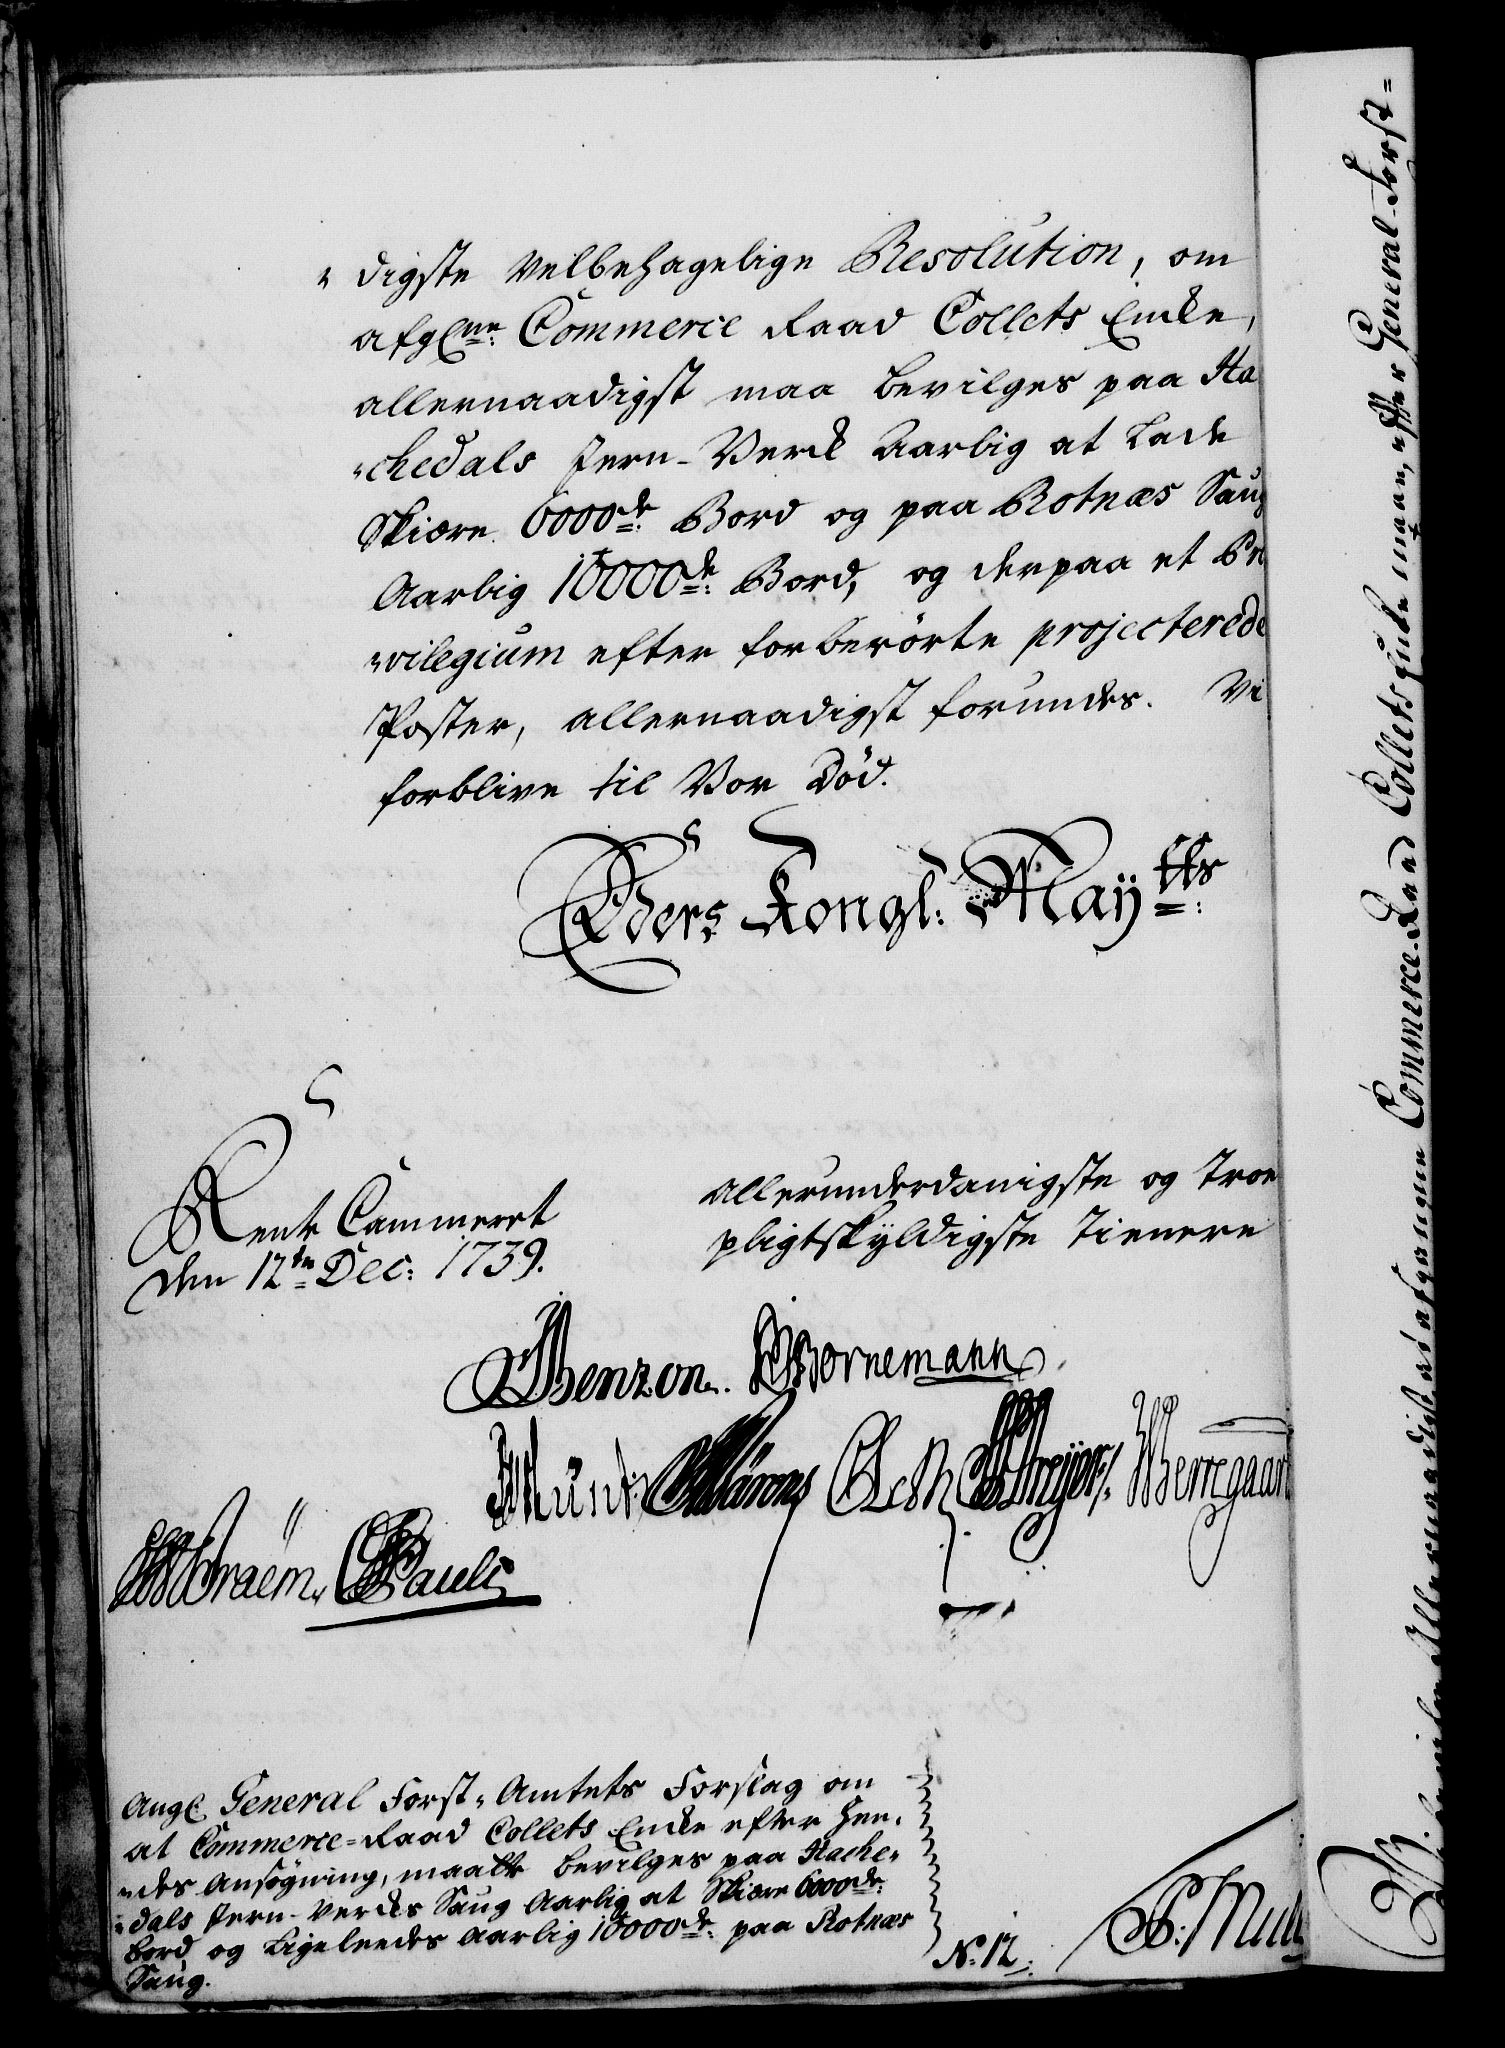 "digste Velbehagelige Resolution, om
afgl:ne Commerce Raad Collets Encke,
allernaadigst maa bevilges paa Ha
"chedals Jern-Verck Aarlig at lade
Skiære 6000de Bord og paa Rotnæs Saug
Aarlig 10000de Bord, og derpaa et Pri
"vilegium efter forberørte projecterede
Poster, allernaadigst forundes. Vi
forblive til Vor Död.
Eders Kongl: Mayts:
Rente Cammeret
den 12te Dec: 1739.
allerunderdanigste og Troe
pligtskyldigste Tienere
Benzon. Bornemann
Braëm. Pauli
Angl. General Forst-Amtets Forslag om
at Commerce-Raad Collets Encke efter Hen-
"des Ansøgning, maatte bevilges paa Hache-
"dals Jern-Vercks Saug Aarlig at Skiære 6000de
Bord og ligeleedes Aarlig 10000de paa Rotnæs
Saug.
No: 12.
allernaadigst at afgangne Commerce-Raad Collets Encke maae, efter General-Forst=